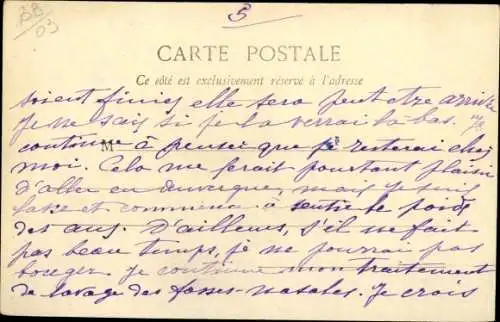 BB
03
5
CARTE POSTALE
Ce côté est exclusivement réservé à l'adresse
soient finies elle sera peut être arrivée
je ne sais si je la verrai là bas.
continue à penser que je resterai chez
M
moi. Cela me ferait pourtant plaisir
d'aller en Auvergne, mais je suis
lasse et commence à sentir le poids
des ans. D'ailleurs, s'il ne fait
pas beau temps, je ne pourrai pas
bouger. Je continue mon traitement
de lavage des fosses-nasales. Je crois